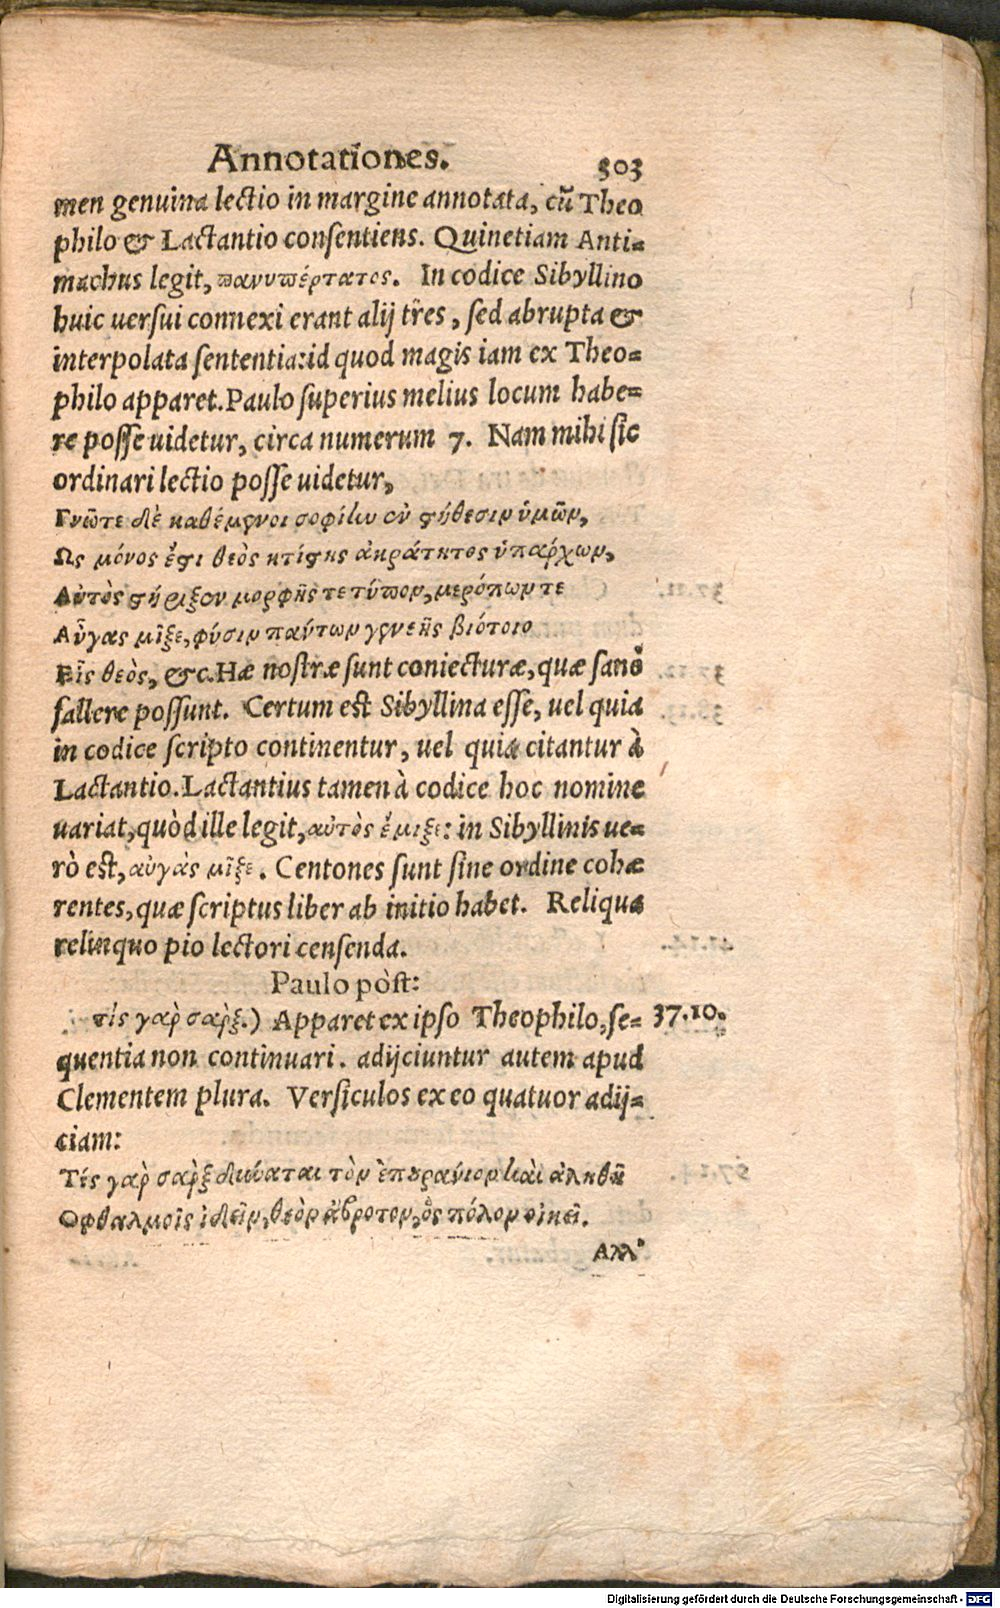 Annotationes. 303
men genuina lectio in margine annotata, cũ Theo
philo & Lactantio consentiens. Quinetiam Anti-
machus legit, πανυπέρτατος. In codice Sibyllino
huic uersui connexi erant alij tres, sed abrupta &
interpolata sententia: id quod magis iam ex Theo-
philo apparet. Paulo superius melius locum habe-
re posse uidetur, circa numerum 7. Nam mihi sic
ordinari lectio posse uidetur,
Γνῶτε δὲ καθέμενοι σοφίην ἐν στήθεσιν ὑμῶν,
Ως μόνος ἔστι θεὸς κτίστης ἀκράτητος ὑπάρχων,
Αὐτὸς στήριξεν μορφῆς τε τύπον, μερόπων τε
Αὖγας μῖξε, φύσιν πάντων γενεῆς βιότοιο
Εἷς θεὸς, &c. Hæ nostræ sunt coniecturæ, quæ sanè
fallere possunt. Certum est Sibyllina esse, uel quia
in codice scripto continentur, uel quia citantur à
Lactantio. Lactantius tamen à codice hoc nomine
uariat, quòd ille legit, αὐτὸς ἔμιξε: in Sibyllinis ue-
rò est, αὐγὰς μῖξε. Centones sunt sine ordine cohæ
rentes, quæ scriptus liber ab initio habet. Reliqua
relinquo pio lectori censenda.
Paulo pòst:
τίς γὰρ σαρξ.) Apparet ex ipso Theophilo, se- 37.10.
quentia non continuari. adijciuntur autem apud
Clementem plura. Versiculos ex eo quatuor adij-
ciam:
Τίς γὰρ σὰρξ δύναται τὸν ἐπουράνιον καὶ ἀληθῆ
Οφθαλμοῖς ἰδεῖν, θεὸν ἄβροτον, ὃς πόλον οἰκεῖ.
Αλλ'
Digitalisierung gefördert durch die Deutsche Forschungsgemeinschaft - DFG